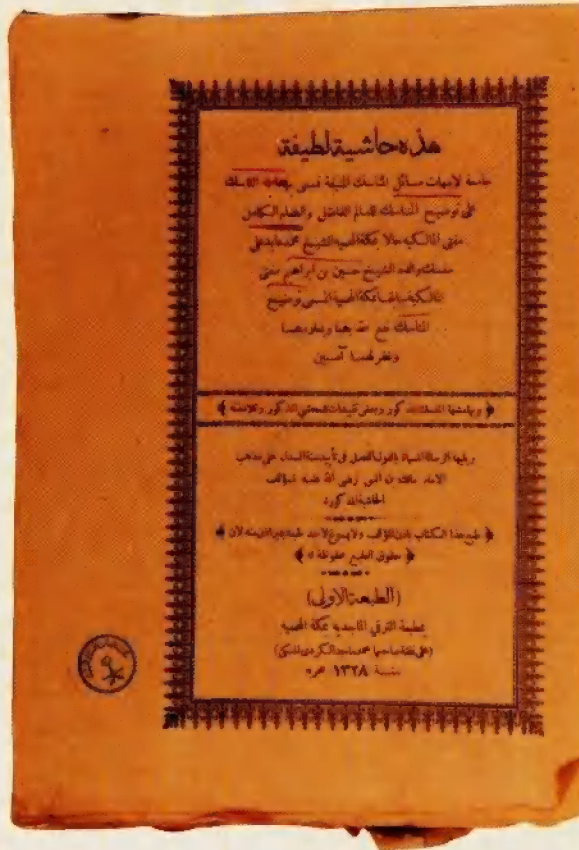 هذه حاشية لطيفة
جامعة لامهات مسائل المناسك المنيفة تسمى بهداية الناسك
على توضيح المناسك للعالم الفاضل والهمام الكامل
مفتى المالكية حالا بمكة المحمية الشيخ محمد عابد على
منسك والده الشيخ حسين بن ابراهيم مفتى
المالكية سابقا بمكة المحمية المسمى توضيح
المناسك نفع الله بهما وبعلومهما
وغفر لهما آمين
﴿ وبهامشها المنسك المذكور وبعض تقييدات للمحشى المذكور ﴾
ويليها الرسالة المسماة بالقول الفصل فى تأييد سنة السدل على مذهب
الامام مالك بن انس رضى الله عنه لمؤلف
الحاشية المذكورة
﴿ طبع هذا الكتاب باذن المؤلف ولا يسوغ لاحد طبعه بغير اذن منه لان ﴾
﴿ حقوق الطبع محفوظة له ﴾
(الطبعة الاولى)
بمطبعة الترقى الماجدية بمكة المحمية
(على نفقة صاحبها محمد ماجد الكردى المكى)
سنة ١٣٢٨